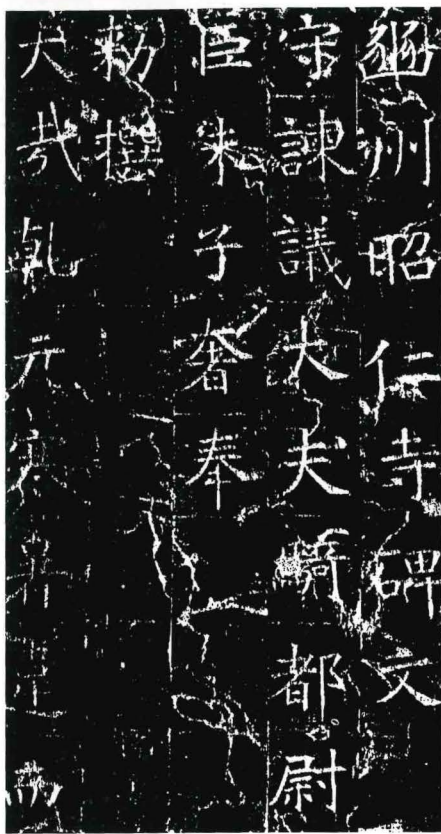 豳州昭仁寺碑文
守諫議大夫騎都尉
臣朱子奢奉
勅撰
大哉乹元